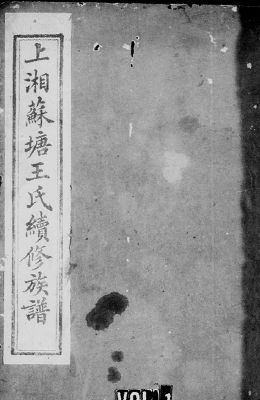 上湘蘇塘王氏續修族譜
VOL 1